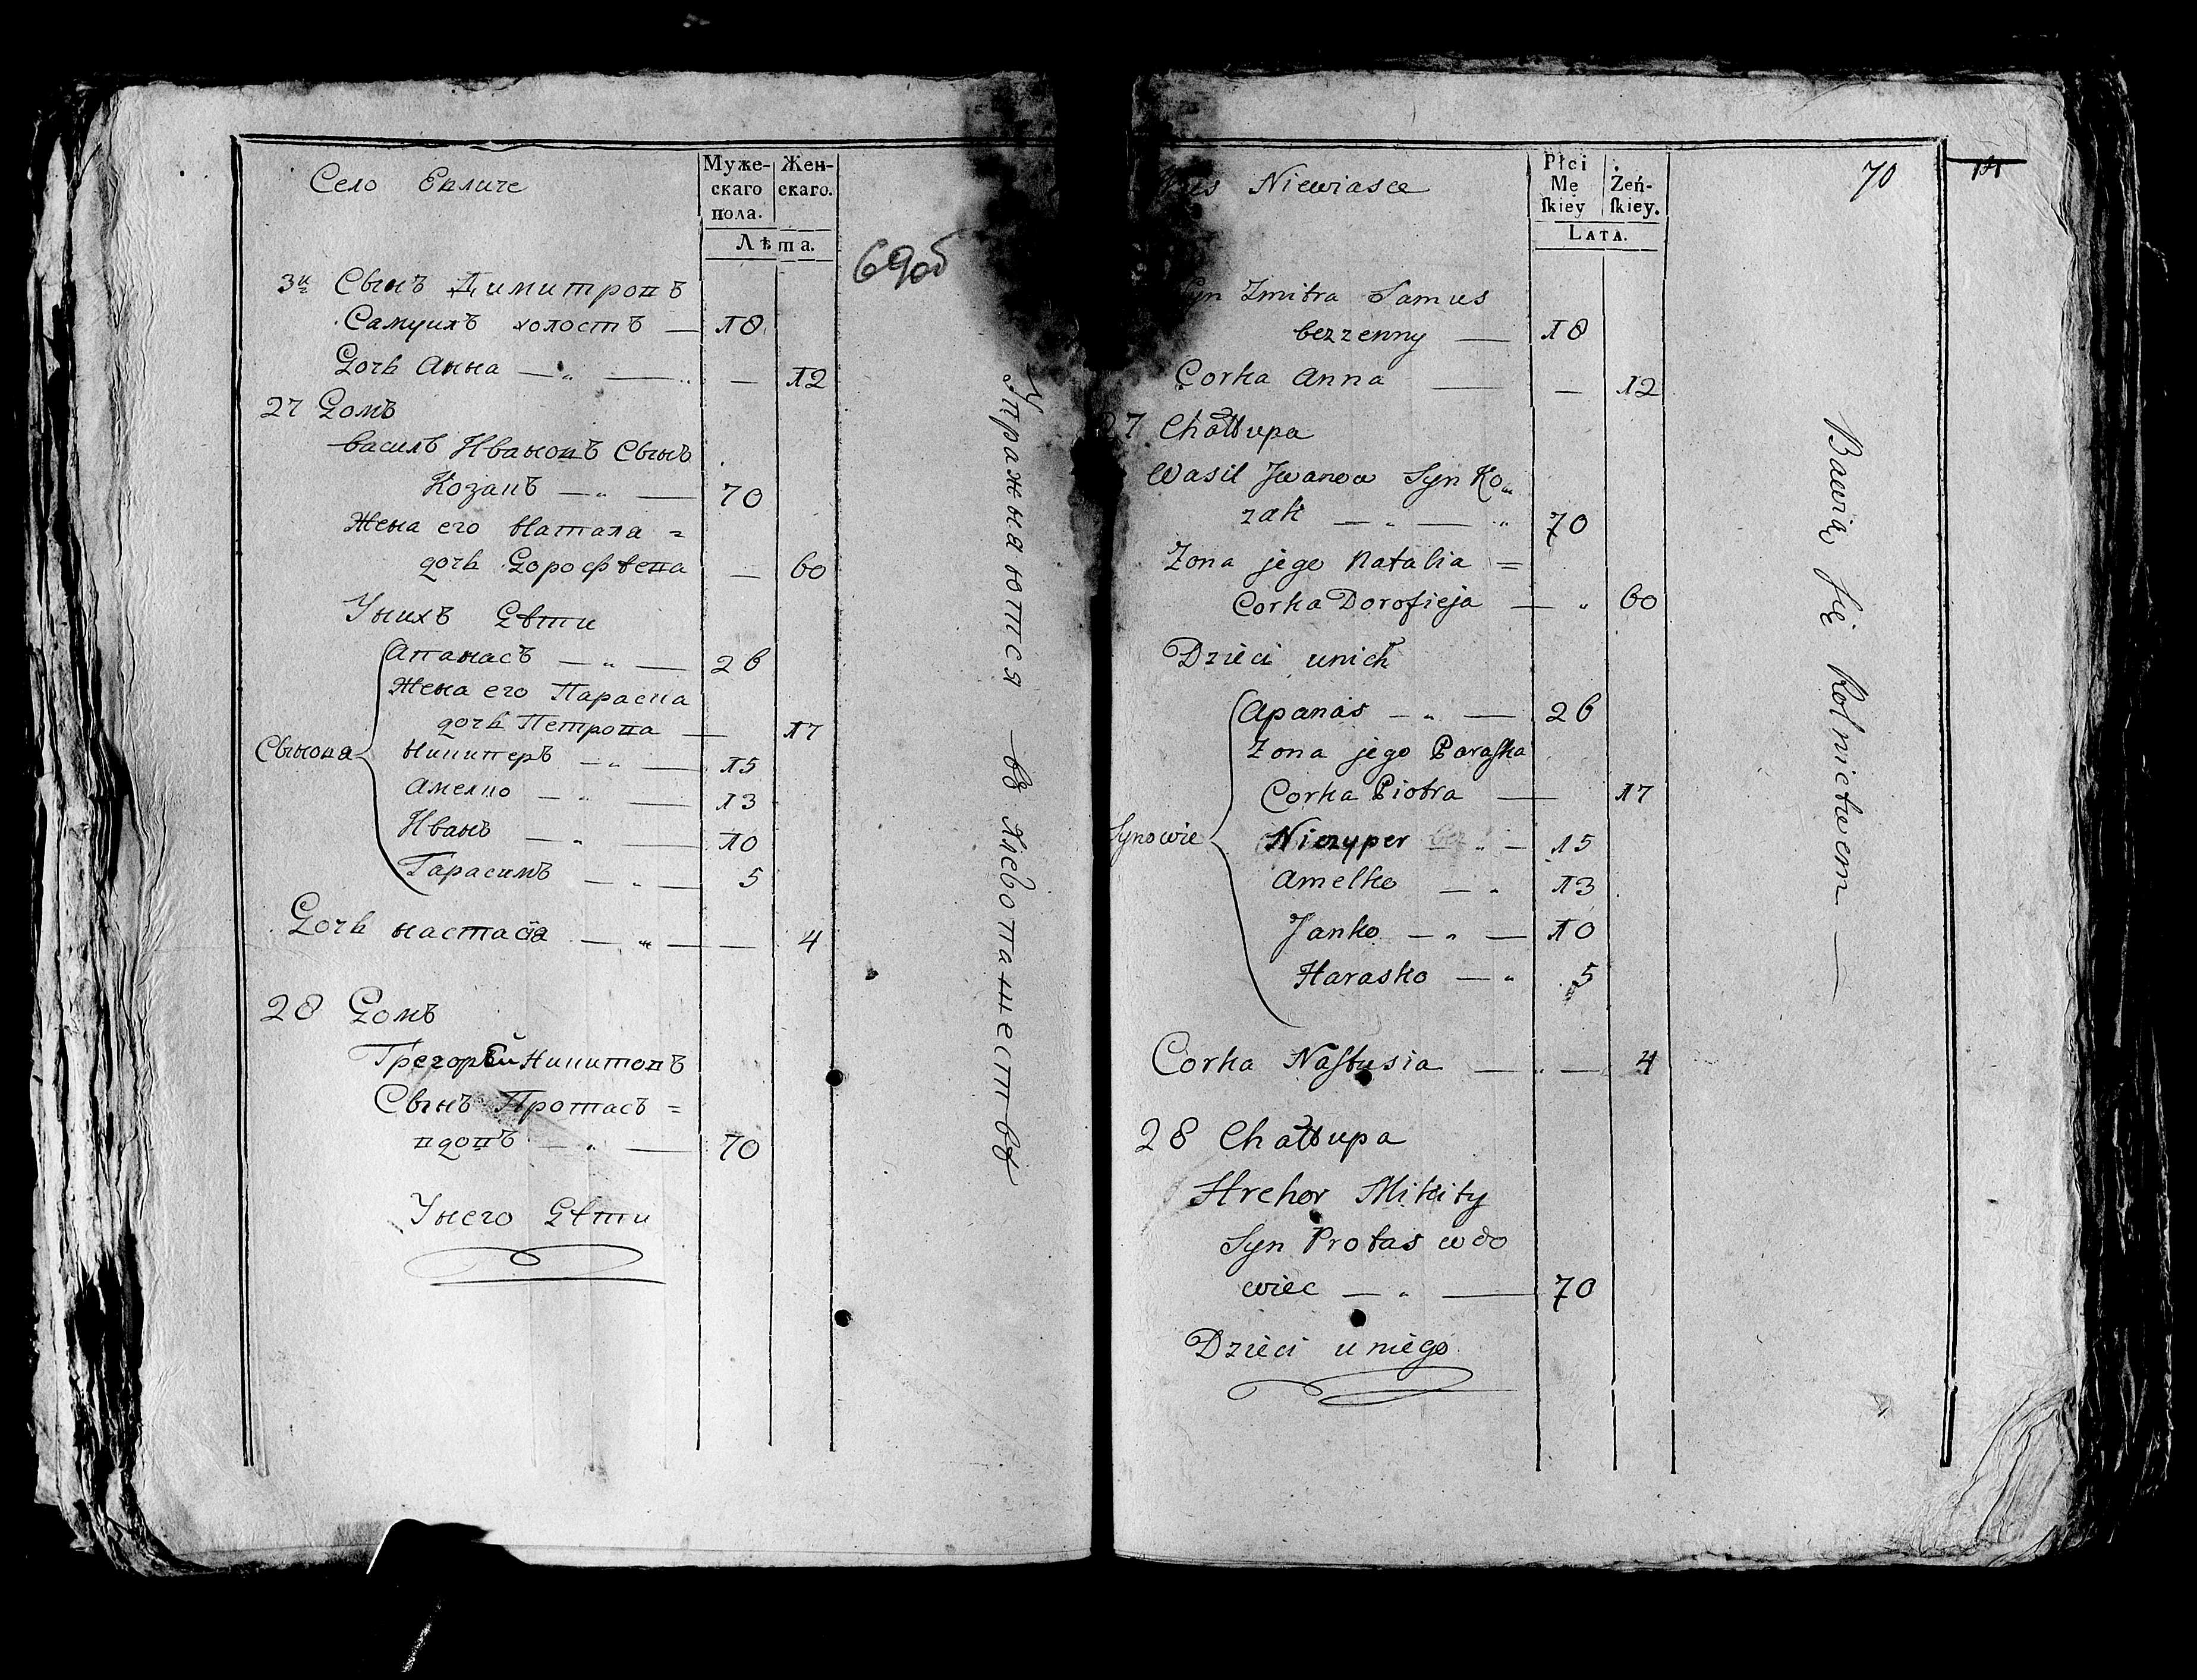 Село
Муже-
скаго
пола.
Жен-
скаго.
Лѣта.
69об
3й Сынъ Димитровъ
Самуилъ холостъ — 18
Дочь Анна — „ — — 12
27 Домъ
Василь Ивановъ Сынъ
Козакъ — „ — 70
Жена его Натала =
дочь Дорофѣева — 60
Унихъ Дѣти
Апанасъ — „ — 26
Жена его Параска
дочь Петрова — 17
Сыновя
Никиперъ — „ — 15
Амелко — „ — 13
Иванъ — „ — 10
Гарасимъ — „ — 5
Дочь настасія — „ — — 4
28 Домъ
Грегорей Никитовъ
Сынъ Протасъ =
вдовъ — „ — 70
Унего Дѣти
Упражняются въ хлебопашествѣ
Niewiasce
Płci
Mę
ſkiey
Żeń-
ſkiey.
LATA.
70
Syn Zmitra Samus
bezzenny — 18
Corka Anna — — 12
27 Chałłupa
Wasil Jwanow Syn Ko„
zak — „ — „ 70
Zona jego Natalia =
Corka Dorofieja — „ 60
Dzieci unich
Apanas — „ — 26
Zona jego Paraſka
Corka Piotra — 17
Synowie
Niczyper „ — 15
Amelko — „ 13
Janko — „ — 10
Harasko — „ 5
Corka Naſtusia — „ — 4
28 Chałłupa
Hrehor Mikity
Syn Protas wdo
wiec — „ — 70
Dzieci uniego
Bawią ſię Rolnictwem —